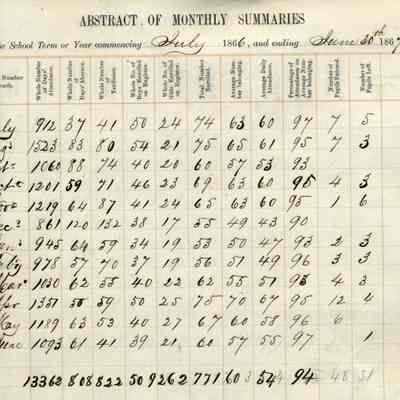 ABSTRACT OF MONTHLY SUMMARIES
School Term or Year commencing July 1866, and ending June 30th 1867
Whole Number of Days' Attendance. Whole Number of Days' Absence. Whole Number of Tardiness. Whole No. of Boys Enrolled on Register. Whole No. of Girls Enrolled on Register. Total Number Enrolled. Average Number belonging. Average Daily Attendance. Percentage of Attendance on Average Number belonging. Number of Pupils Entered. Number of Pupils Left.
912 37 41 50 24 74 63 60 97 7 5
1523 83 80 54 21 75 65 61 95 7 3
1060 88 74 40 20 60 57 53 93
1201 59 71 46 23 69 63 60 95 4 3
1219 64 87 41 24 65 63 60 95 1 6
861 120 132 38 17 55 49 43 90
945 64 59 34 19 53 50 47 93 2 3
978 57 70 37 19 56 51 49 96 3 3
1030 62 55 40 22 62 55 51 95 4 3
1351 55 59 50 25 75 70 67 95 12 4
1189 63 53 40 27 67 60 58 96 6
1093 61 41 39 21 60 57 55 97 1
13362 808 822 509 262 771 60 54 94 48 31